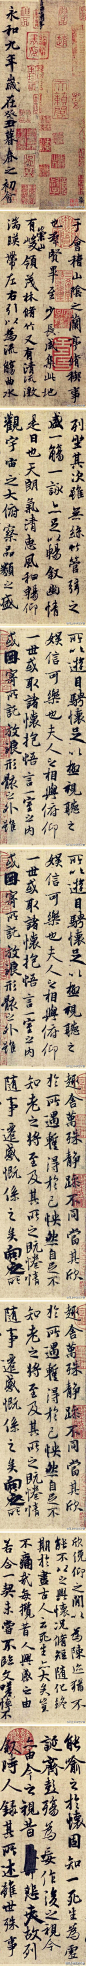 永和九年歲在癸丑暮春之初會
于會稽山陰之蘭亭脩稧事
也羣賢畢至少長咸集此地
有崇山峻領茂林脩竹又有清流激
湍暎帶左右引以為流觴曲水
列坐其次雖無絲竹管弦之
盛一觴一詠亦足以暢敘幽情
是日也天朗氣清惠風和暢仰
觀宇宙之大俯察品類之盛
所以遊目騁懷足以極視聽之
娛信可樂也夫人之相與俯仰
一世或取諸懷抱悟言一室之內
或因寄所託放浪形骸之外雖
所以遊目騁懷足以極視聽之
娛信可樂也夫人之相與俯仰
一世或取諸懷抱悟言一室之內
或因寄所託放浪形骸之外雖
趣舍萬殊靜躁不同當其欣
於所遇蹔得於己怏然自足不
知老之將至及其所之既惓情
隨事遷感慨係之矣向之所
趣舍萬殊靜躁不同當其欣
於所遇蹔得於己怏然自足不
知老之將至及其所之既惓情
隨事遷感慨係之矣向之所
欣俛仰之閒以為陳迹猶不
能不以之興懷況脩短隨化終
期於盡古人云死生亦大矣豈
不痛哉每攬昔人興感之由
若合一契未嘗不臨文嗟悼不
能喻之於懷固知一死生為虛
誕齊彭殤為妄作後之視今
亦由今之視昔悲夫故列
敘時人錄其所述雖世殊事